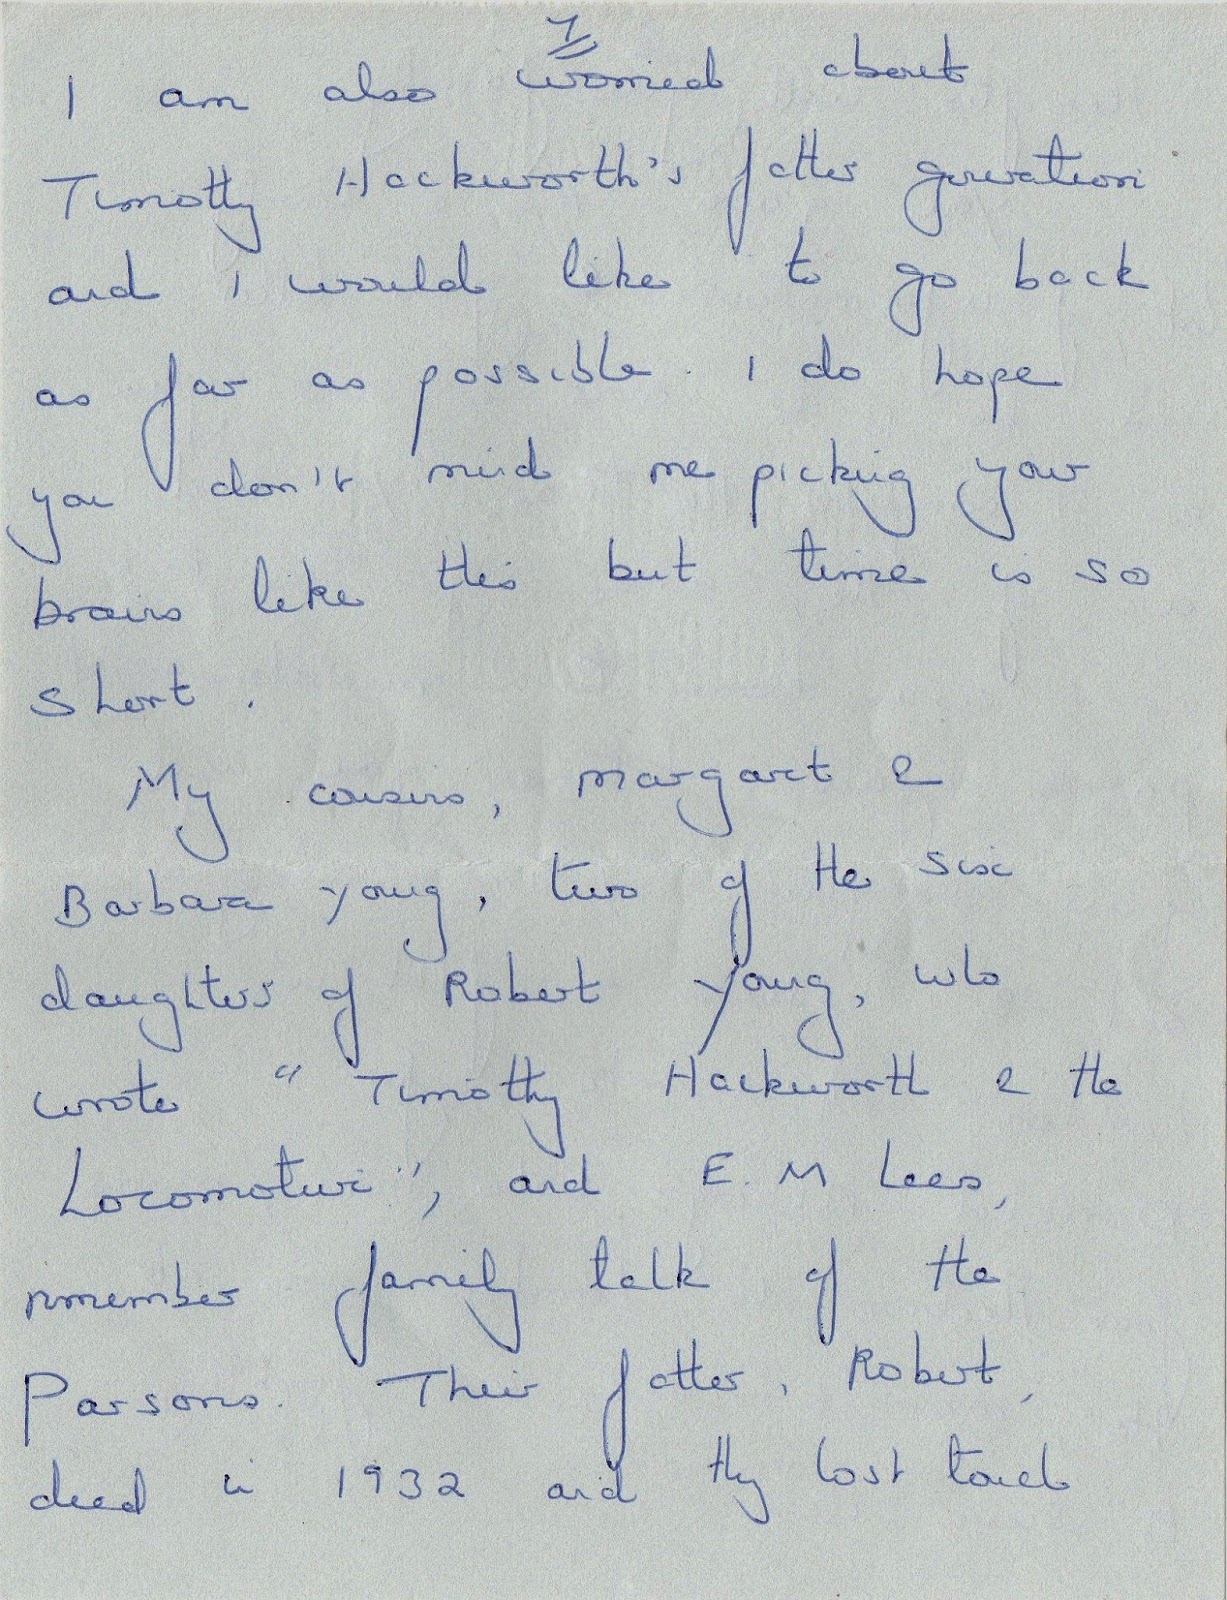 7
I am also worried about
Timothy Hackworth's father generation
and I would like to go back
as far as possible. I do hope
you don't mind me picking your
brains like this but time is so
short.
My cousins, Margaret &
Barbara Young, two of the six
daughters of Robert Young, who
wrote "Timothy Hackworth & the
Locomotive", and E. M Lees,
remember family talk of the
Parsons. Their father, Robert,
died in 1932 and they lost touch